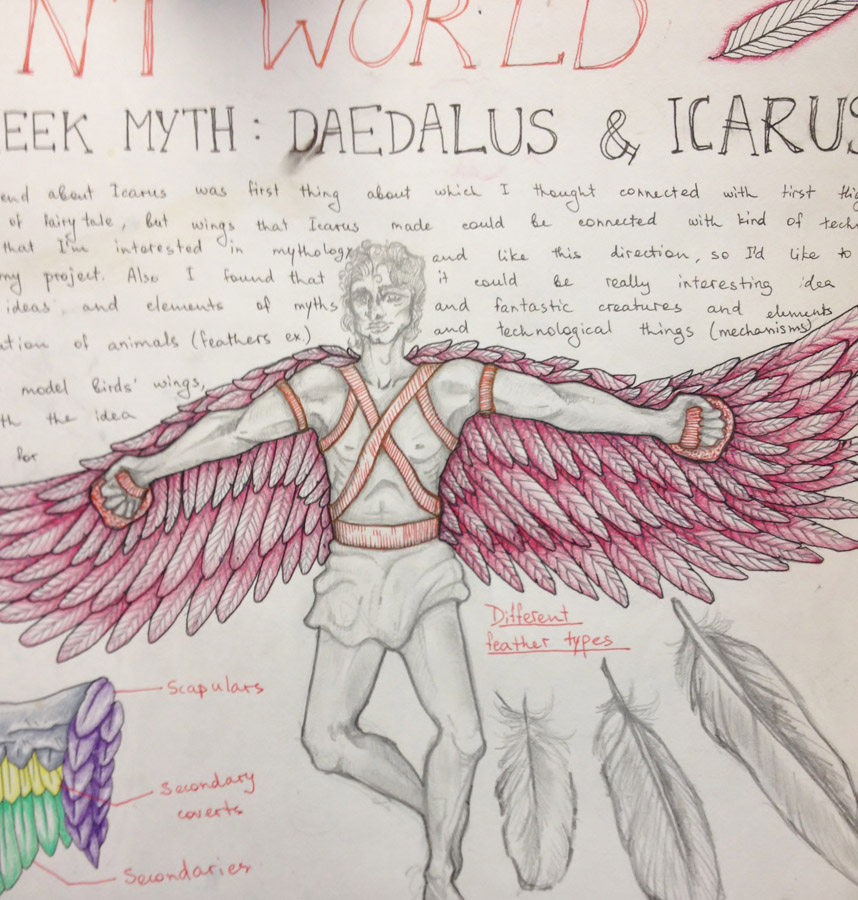 NT WORLD
EEK MYTH: DAEDALUS & ICARUS
end about Icarus was first thing about which I thought connected with first thi
of fairy tale, but wings that Icarus made could be connected with kind of tech
that I'm interested in mythology and like this direction, so I'd like to
my project. Also I found that it could be really interesting idea
ideas and elements of myths and fantastic creatures and elements
ation of animals (feathers ex.) and technological things (mechanisms)
model birds' wings,
th the idea
for
Different
feather types
Scapulars
Secondary
coverts
Secondaries